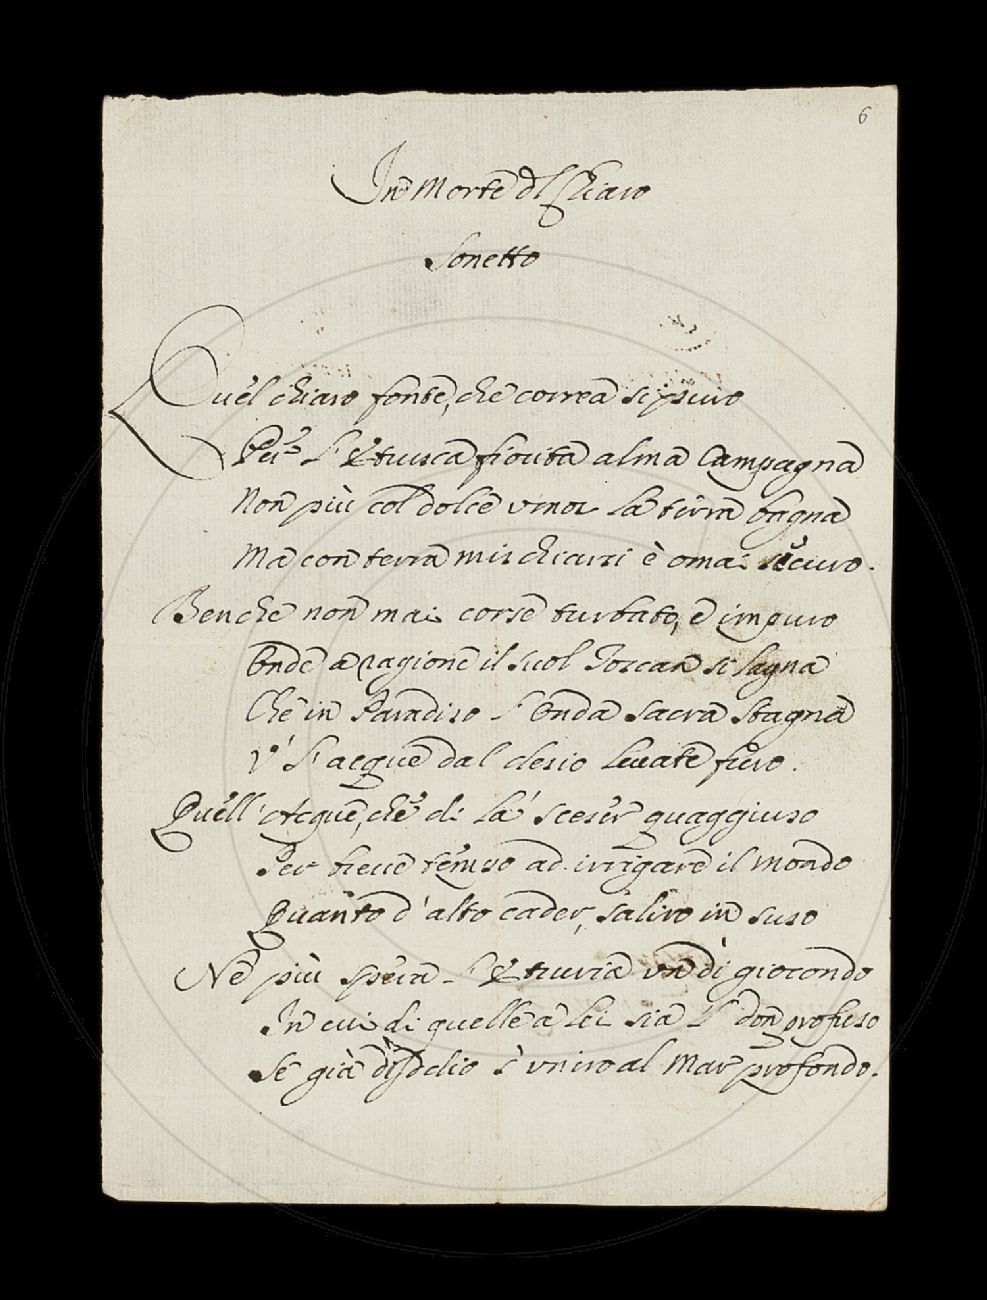 6
In Morte del Chiaro
Sonetto
Quel chiaro fonte, che correa si puro
Per l'Etrusca fiorita alma Campagna
Non più col dolce umor la terra bagna
Ma con terra mischiarsi è omai securo.
Benche non mai corse turbato, e impuro
Onde a ragione il suol Toscan si lagna
Che in Paradiso l'onda sacra stagna
V' l'acque dal desio levate furo.
Quell'Acque, che di là sceser quaggiuso
Per breve tempo ad irrigare il mondo
Quanto d'alto cader, saliro in suso
Ne più spera l'Etruria un dì giocondo
In cui di quelle a lei sia il don profuso
Se già di Dio s'uniro al Mar profondo.